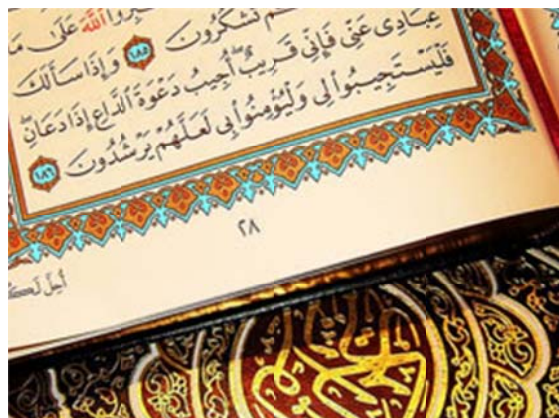 ـرُوا اللَّهَ عَلَىٰ مَا
ـم تَشْكُرُونَ ١٨٥ وَإِذَا سَأَلَكَ
عِبَادِى عَنِّى فَإِنِّى قَرِيبٌ أُجِيبُ دَعْوَةَ الدَّاعِ إِذَا دَعَانِ
فَلْيَسْتَجِيبُوا لِى وَلْيُؤْمِنُوا بِى لَعَلَّهُمْ يَرْشُدُونَ ١٨٦
٢٨
أُحِلَّ لَكـ